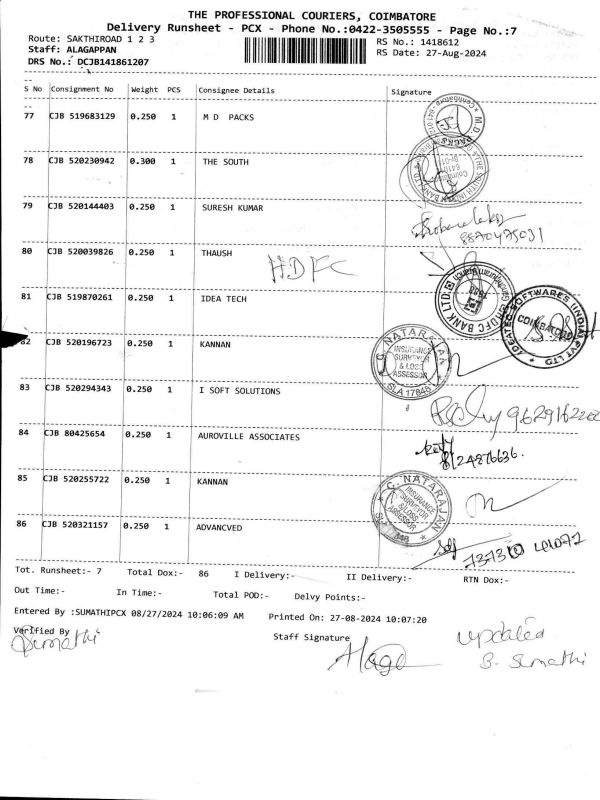 THE PROFESSIONAL COURIERS, COIMBATORE
Delivery Runsheet - PCX - Phone No.:0422-3505555 - Page No.:7
Route: SAKTHIROAD 1 2 3
RS No.: 1418612
Staff: ALAGAPPAN
RS Date: 27-Aug-2024
DRS No.: DCJB141861207
S No Consignment No Weight PCS Consignee Details Signature
77 CJB 519683129 0.250 1 M D PACKS
78 CJB 520230942 0.300 1 THE SOUTH
79 CJB 520144403 0.250 1 SURESH KUMAR
8870475031
80 CJB 520039826 0.250 1 THAUSH
HDFC
HDFC BANK LTD.
81 CJB 519870261 0.250 1 IDEA TECH
COIMBATORE
82 CJB 520196723 0.250 1 KANNAN
C. NATARAJAN
INSURANCE
SURVEYOR
& LOSS
ASSESSOR
SLA 17848
83 CJB 520294343 0.250 1 I SOFT SOLUTIONS
84 CJB 80425654 0.250 1 AUROVILLE ASSOCIATES
85 CJB 520255722 0.250 1 KANNAN
C. NATARAJAN
INSURANCE
SURVEYOR
& LOSS
ASSESSOR
86 CJB 520321157 0.250 1 ADVANCVED
Tot. Runsheet:- 7 Total Dox:- 86 I Delivery:- II Delivery:- RTN Dox:-
Out Time:- In Time:- Total POD:- Delvy Points:-
Entered By :SUMATHIPCX 08/27/2024 10:06:09 AM Printed On: 27-08-2024 10:07:20
Verified By Staff Signature
Sumathi
Alaga
updated
B. Sumathi